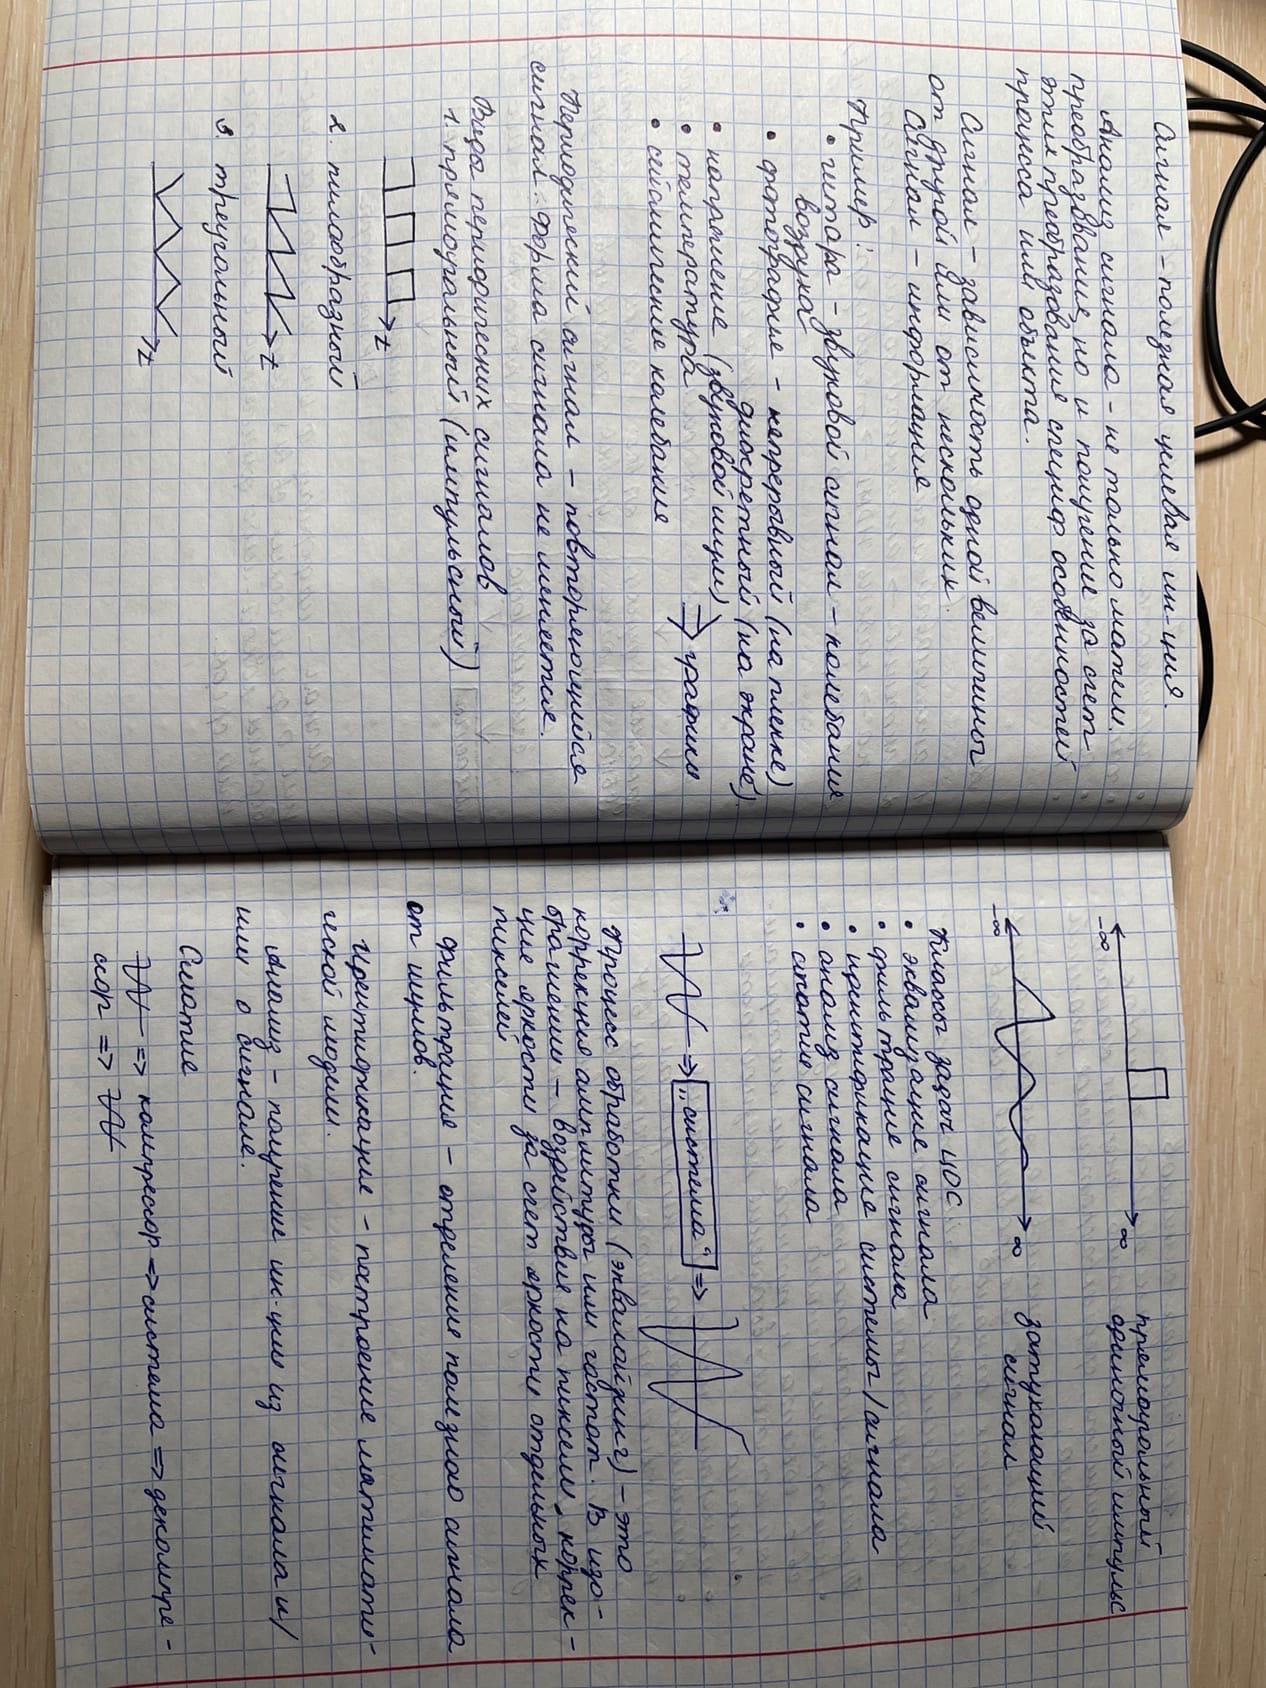 Сигнал – полезная целевая ин-ция.
Анализ сигнала – не только матем.
преобразования, но и получение за счет
этих преобразования специф особенностей
процесса или объекта.
Сигнал – зависимость одной величины
от другой или от нескольких.
Сигнал – информация
Пример:
• гитара – звуковой сигнал – колебания
воздуха
• фотография – непрерывный (на пленке)
дискретный (на экране).
• напряжение (звуковой шум)
• температура => графики
• сейсмические колебания
Периодический сигнал – повторяющийся
сигнал. Форма сигнала не меняется.
Виды периодических сигналов
1. прямоугольный (импульсный)
t
2. пилообразный
t
3. треугольный
t
-∞ ∞ прямоугольный
одиночный импульс
-∞ ∞ затухающий
сигнал
Классы задач ЦОС
• эквализация сигнала
• фильтрация сигнала
• идентификация системы/сигнала
• анализ сигнала
• сжатие сигнала
=> „система“ =>
Процесс обработки (эквалайзинг) – это
коррекция амплитуды или частот. В изо-
бражении – воздействие на пиксели, коррек-
ция яркости за счет яркости отдельных
пикселей
Фильтрация – отделение полезного сигнала
от шумов.
Идентификация – построение математи-
ческой модели.
Анализ – получение ин-ции из сигнала и/
или о сигнале.
Сжатие
=> компрессор => система => декомпре-
ссор =>